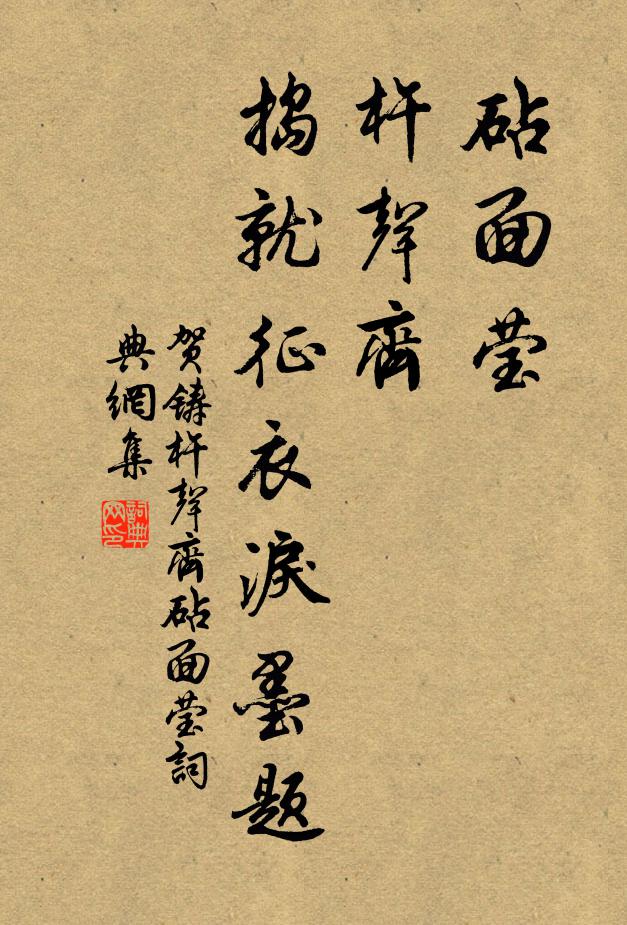 砧面莹
杵聲齊
搗就征衣淚墨題
贺鑄杵聲齊砧面莹詞
典網集
詞典
网印